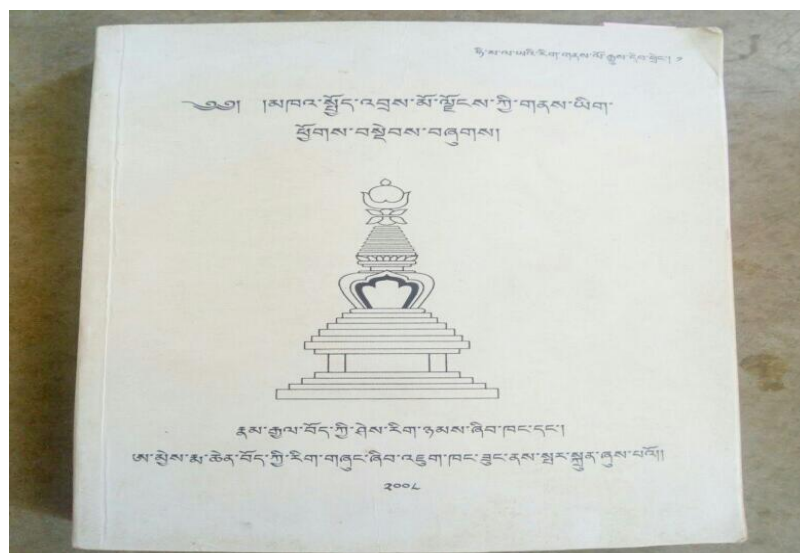 ཧི་མ་ལ་ཡའི་རིག་གནས་ལོ་རྒྱུས་དེབ་ཕྲེང་། ༡
༄༅། །མཁའ་སྤྱོད་འབྲས་མོ་ལྗོངས་ཀྱི་གནས་ཡིག་
ཕྱོགས་བསྡེབས་བཞུགས།
རྣམ་རྒྱལ་བོད་ཀྱི་ཤེས་རིག་ཉམས་ཞིབ་ཁང་དང་།
ཨ་མྱེས་རྨ་ཆེན་བོད་ཀྱི་རིག་གཞུང་ཞིབ་འཇུག་ཁང་ཟུང་ནས་སྤར་སྐྲུན་ཞུས་པའོ།།
༢༠༠༨